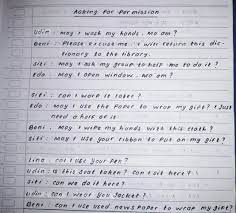 Asking for Permission
Udin : May I wash my hands, Mo am?
Beni : Please excuse me. I will return this dic-
tionary to the library.
Siti : May I ask my group to help me to do it?
Edo : May I open window, Mo am?
Siti : Can I word it later?
Edo : May I use the Paper to wrap my gift? I Just
need a half of it
Beni : May I wipe my hands with this cloth?
Siti : May I use your ribbon to Put on my gift?
Lina : Can I use your Pen?
Udin : Is this seat taken? Can I sit here?
Siti : Can we do it here?
Udin : Can I wear You Jacket?
Beni : Can I use used news Paper to wrap my gift?